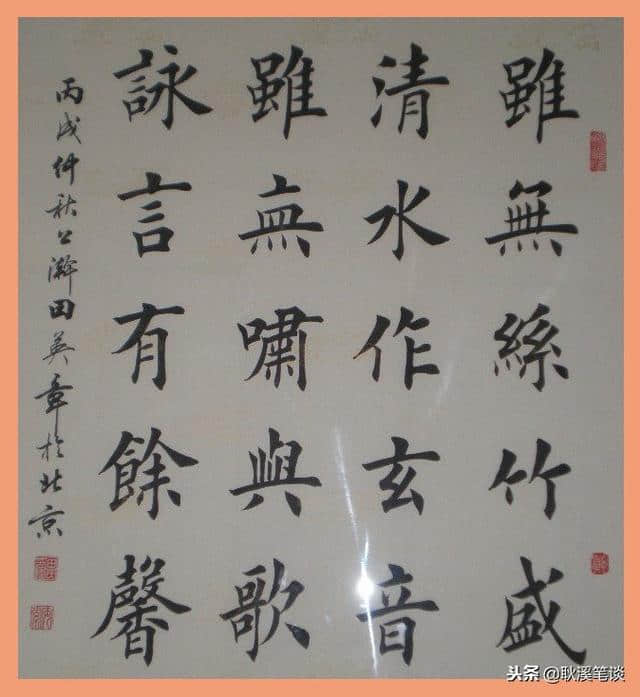 雖無絲竹盛
清水作玄音
雖無嘯與歌
詠言有餘馨
丙戌仲秋公瀚田英章於北京
头条@耿溪笔谈